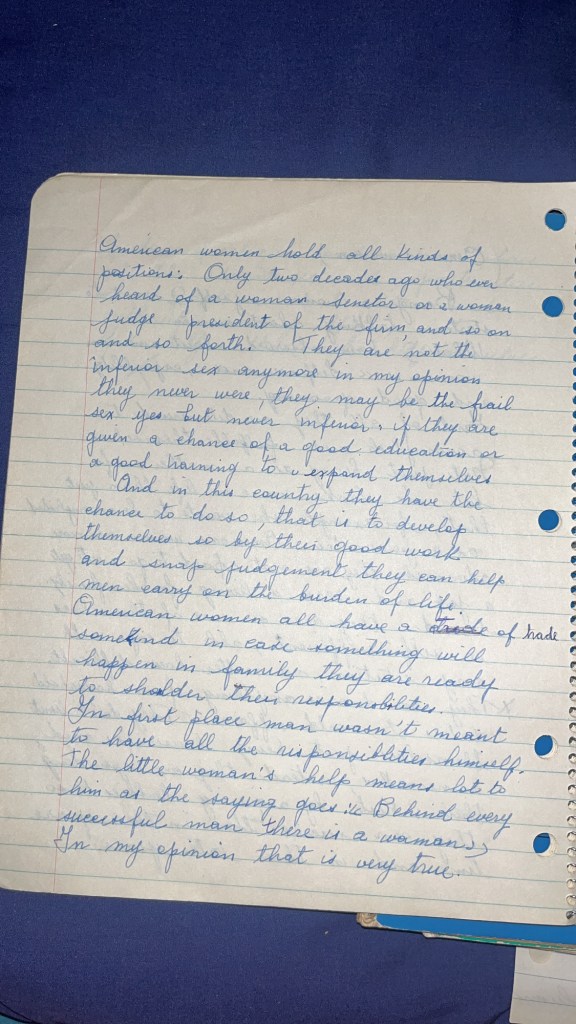 American women hold all kinds of
positions. Only two decades ago who ever
heard of a woman Senetor or a woman
judge president of the firm and so on
and so forth. They are not the
inferior sex anymore in my opinion
they never were, they may be the frail
sex yes but never inferior, if they are
given a chance of a good education or
a good training to expand themselves
And in this country they have the
chance to do so, that is to develop
themselves so by their good work
and snap judgement they can help
men carry on the burden of life.
American women all have a trade of trade
some kind in case something will
happen in family they are ready
to sholder their responsibilities.
In first place man wasn't meant
to have all the responsiblities himself.
The little woman's help means lot to
him as the saying goes: Behind every
successful man there is a woman
In my opinion that is very true.